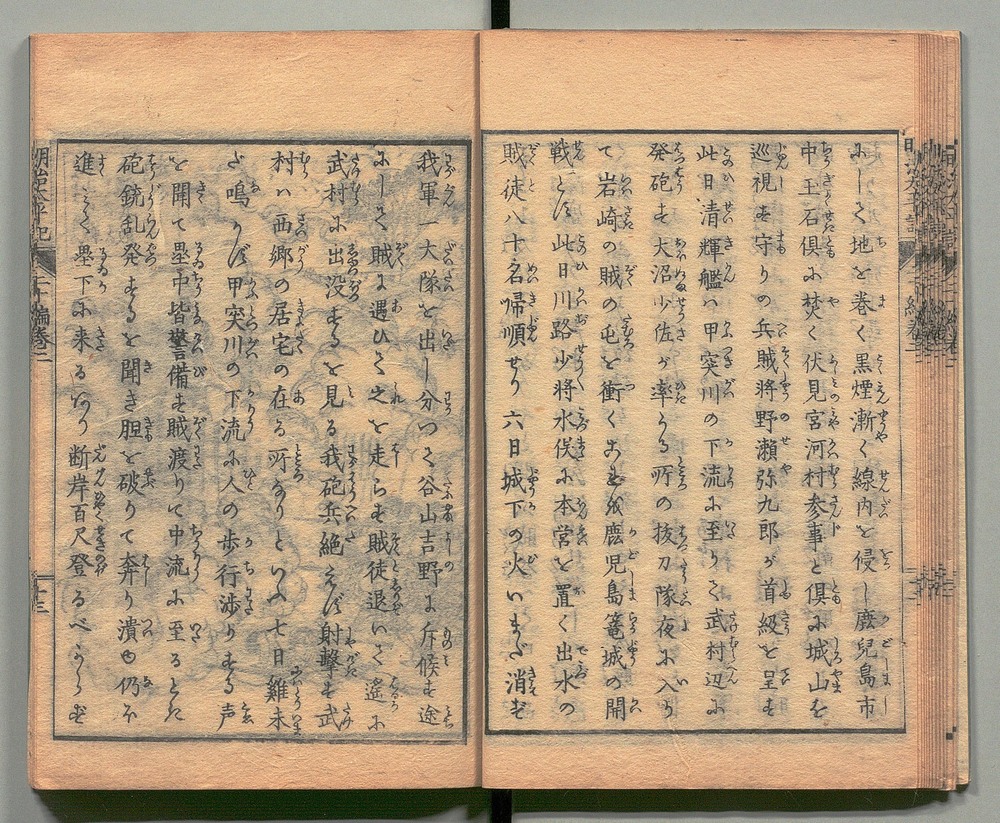 にして地を巻く黒煙漸く線内を侵し鹿児島市
中玉石倶に焚く伏見宮河村参事と倶に城山を
巡視す守りの兵賊将野瀬弥九郎が首級を呈す
此日清輝艦ハ甲突川の下流に至りて武村辺に
発砲す大沼少佐が率うる所の抜刀隊夜に入り
て岩崎の賊の屯を衝く鹿児島篭城の開
戦とす此日川路少将水俣に本営を置く出水の
賊徒八十名帰順せり六日城下の火いまだ消ず
我軍一大隊を出し分つて谷山吉野に斥候す途
にして賊に遇ひて之を走らす賊徒退いて遥に
武村に出没するを見る我砲兵絶えず射撃す武
村ハ西郷の居宅の在る所なりといふ七日雞未
だ鳴かず甲突川の下流に人の歩行渉りする声
を聞て塁中皆警備す賊渡りて中流に至るとた
砲銃乱発するを聞き胆を破りて奔り潰ゆ仍ほ
進て塁下に来るあり断岸百尺登るべからず
明治太平記
十編巻二
十三